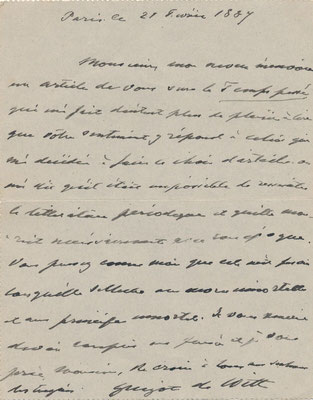 Paris le 21 Février 1887
Monsieur, mon neveu m'envoie
un article de vous sur le Temps passé
qui me fait d'autant plus de plaisir à lire
que votre sentiment y répond à celui qui
m'a décidée à faire ce choix d'articles on
m'a dit qu'il était impossible de
la littérature périodique et qu'elle
avec son époque.
Vous pensez comme moi que
lorsqu'elle touche au
et aux principes immortels. Je vous remercie
d'avoir compris ma pensée et je vous
prie, Monsieur, de croire à tous
Guizot de Witt